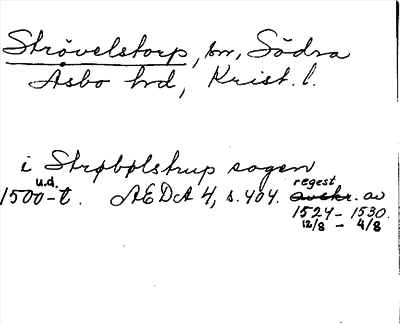 Strövelstorp, sn, Södra
Åsbo hd, Krist. l.
i Strøbølstrup sogen
u.d.
1500-t. AEDA 4, s. 404. regest avskr. av
1524 - 1530.
12/8 - 4/8